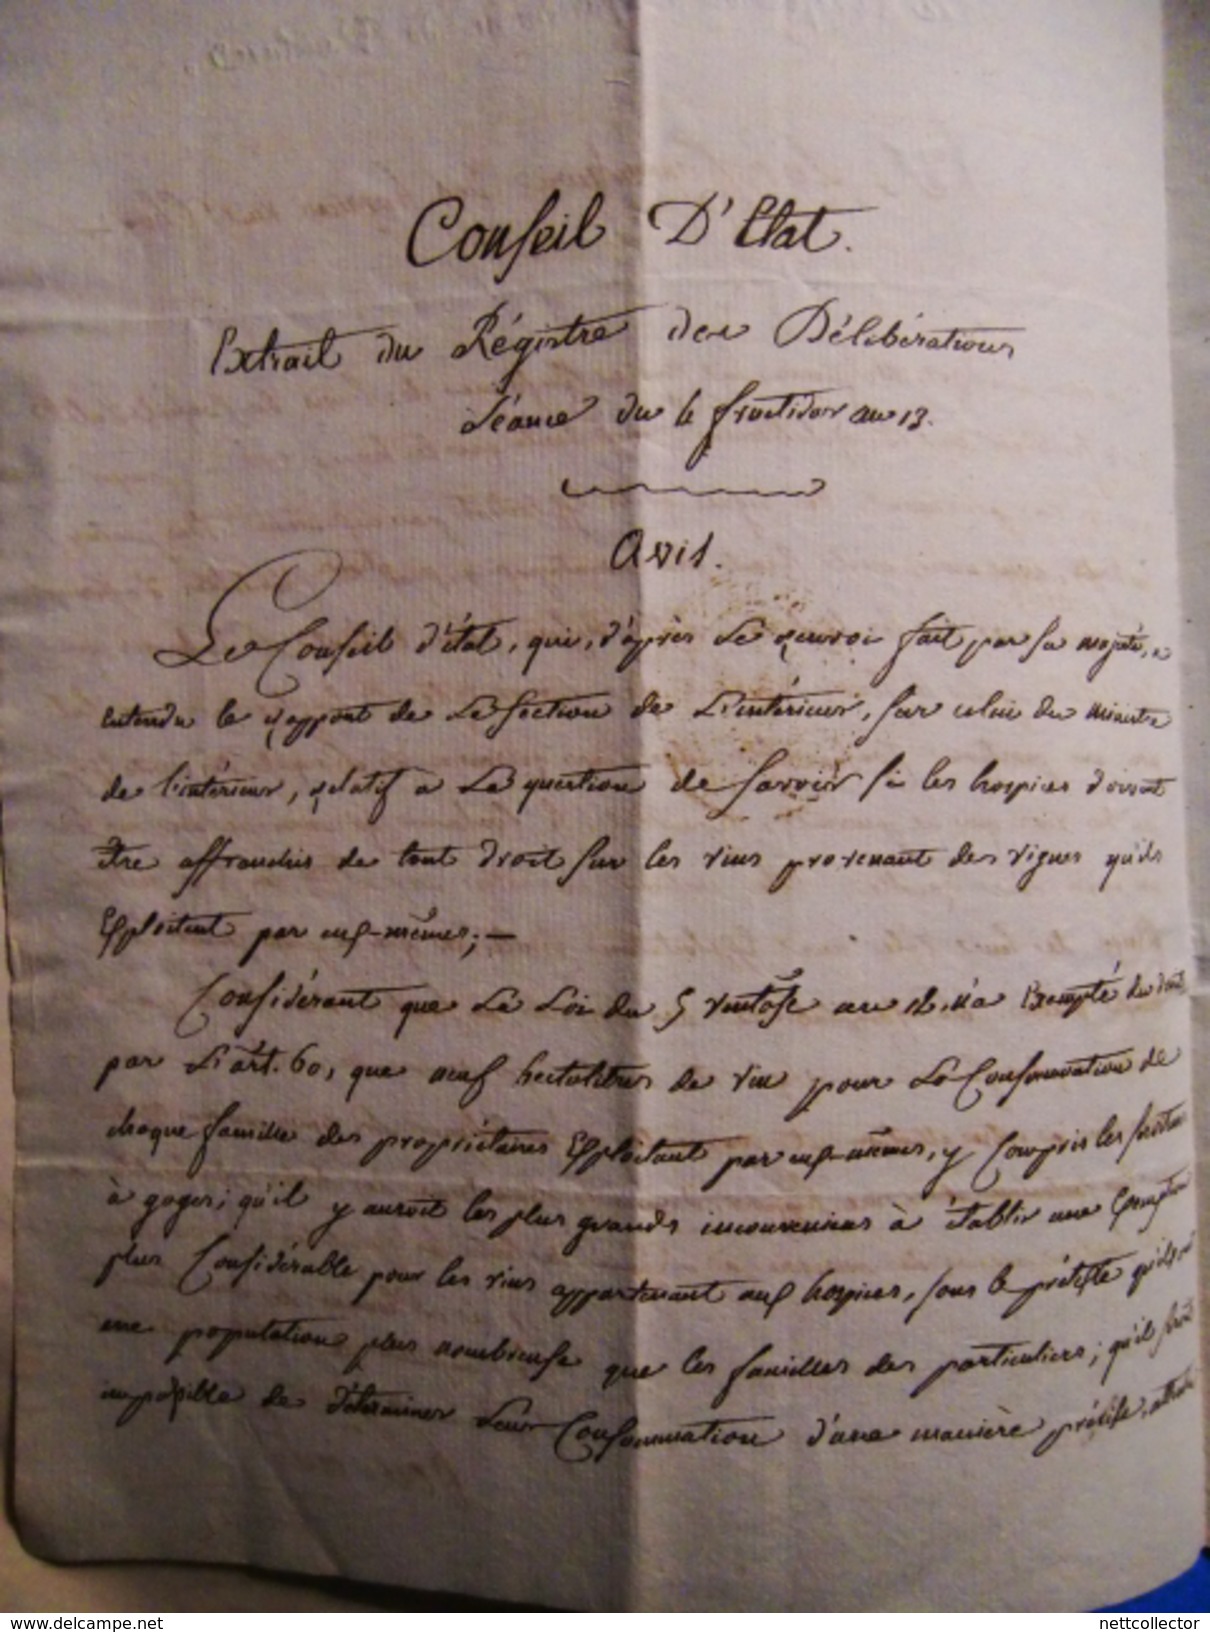 Conseil D'Etat.
Extrait du Régistre des Délibérations
Séance du 4 fructidor an 13.
Avis.
Le Conseil d'état, qui, d'après le renvoi fait par sa majesté, a
entendu le rapport de la section de l'intérieur, sur celui du ministre
de l'intérieur, relatif a la question de savoir si les hospices doivent
être affranchis de tout droit sur les vins provenant des vignes qu'ils
Exploitent par eux-mêmes; —
Considérant que la Loi du 5 ventôse an 12. n'a Exempté du droit
par l'art. 60, que neuf hectolitres de vin pour la Consommation de
chaque famille des propriétaires Exploitant par eux-mêmes, y Compris les
à gages; qu'il y auroit les plus grands inconveniens à établir une Exemption
plus Considérable pour les vins appartenant aux hospices, sous le prétexte qu'ils ont
une population plus nombreuse que les familles des particuliers; qu'il seroit
impossible de déterminer leur Consommation d'une manière précise,
www.delcampe.net
nettcollector